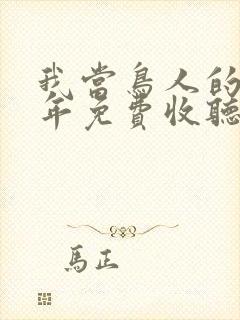 我當鳥人的
年免費收聽
馬正